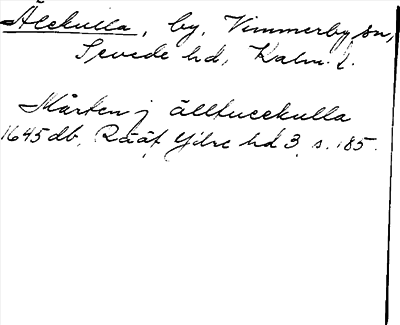 Älekulla, by, Vimmerby sn,
Sevede hd, Kalm. l.
Mårten j älltucekulla
1645 db, Rääf Ydre hd 3, s. 185.